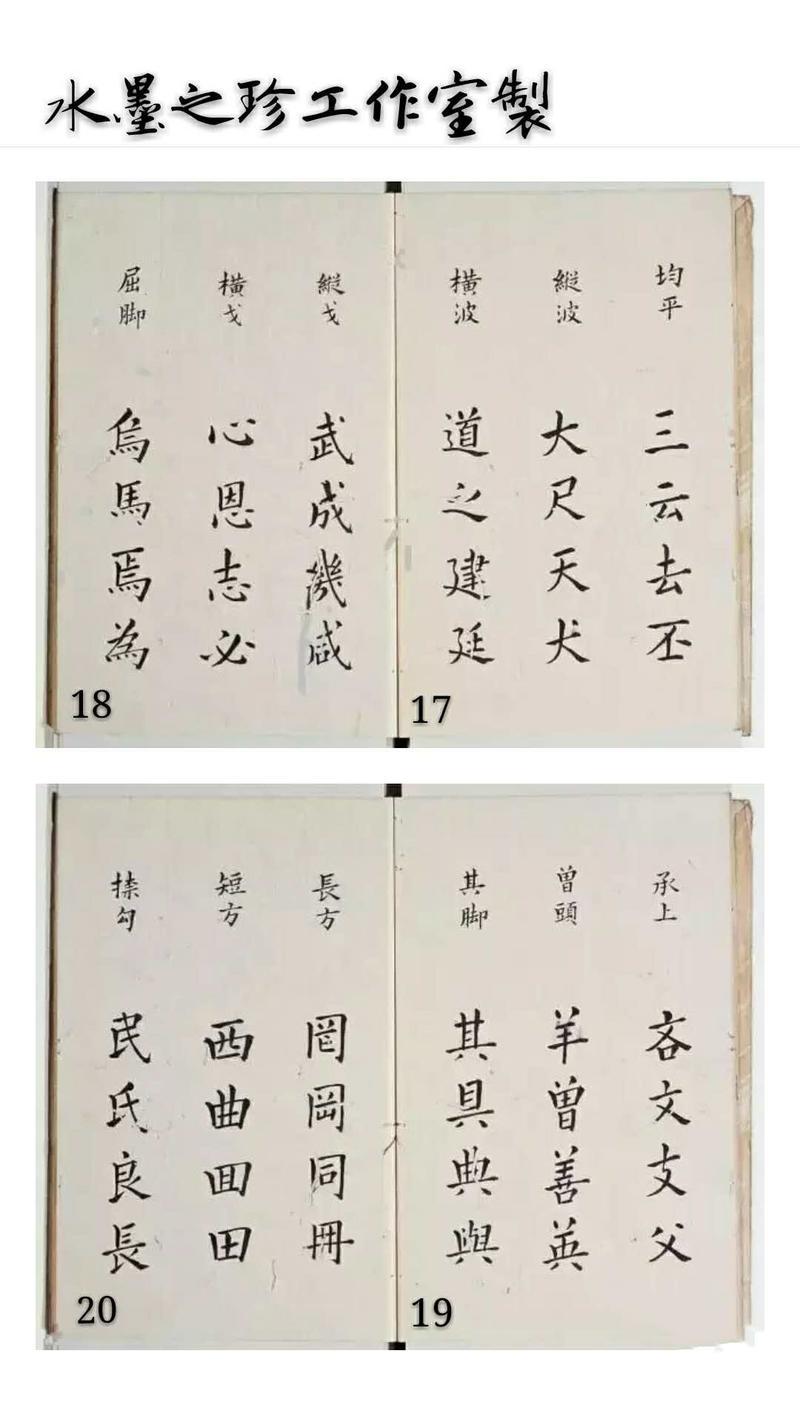 水墨之珍工作室製
均平
三云去丕
縱波
大尺天犬
橫波
道之建延
17
縱戈
武成幾咸
橫戈
心恩志必
屈脚
烏馬焉為
18
承上
吝文支父
曾頭
羊曾善英
其脚
其具典與
19
長方
罔岡同冊
短方
西曲回田
搽勾
民氏良長
20